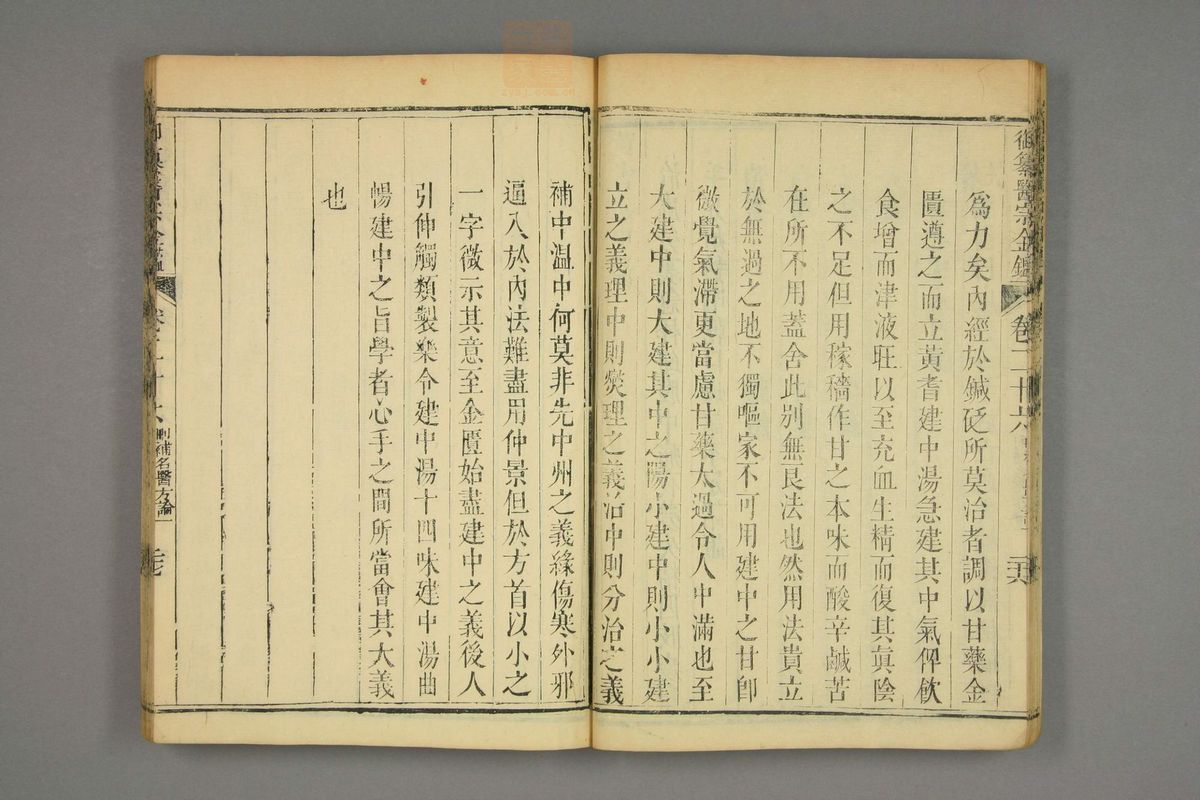 御纂醫宗金鑑
卷二十六
為力矣內經於鍼砭所莫治者調以甘藥金
匱遵之而立黃耆建中湯急建其中氣俾飲
食增而津液旺以至充血生精而復其眞陰
之不足但用稼穡作甘之本味而酸辛鹹苦
在所不用蓋舍此別無良法也然用法貴立
於無過之地不獨嘔家不可用建中之甘卽
微覺氣滯更當慮甘藥太過令人中滿也至
大建中則大建其中之陽小建中則小小建
立之義理中則燮理之義治中則分治之義
補中溫中何莫非先中州之義緣傷寒外邪
逼入於內法難盡用仲景但於方首以小之
一字微示其意至金匱始盡建中之義後人
引伸觸類製樂令建中湯十四味建中湯曲
暢建中之旨學者心手之間所當會其大義
也
刪補名醫方論一